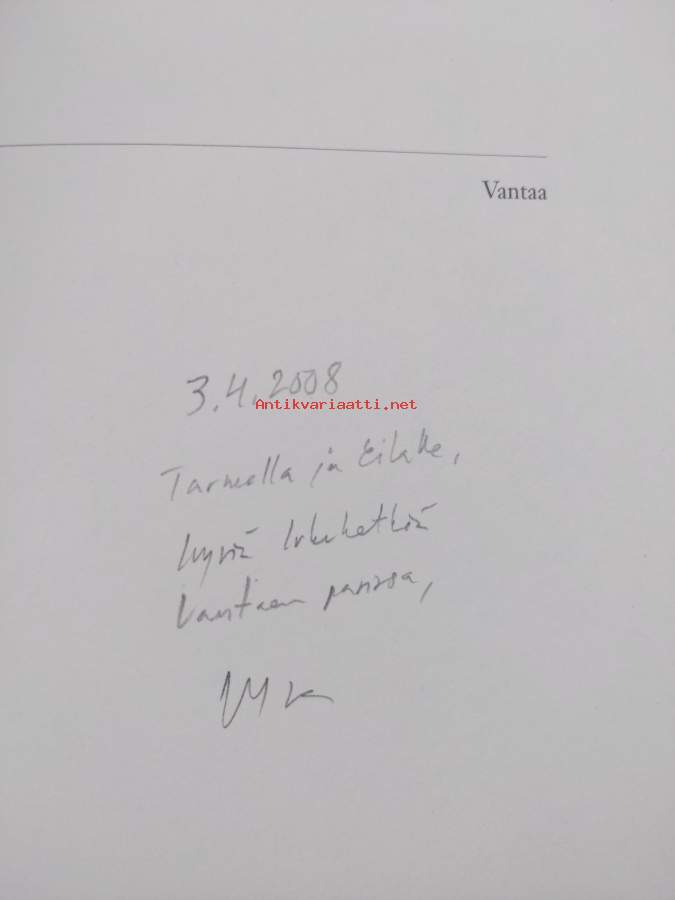 Vantaa
3.4.2008
Antikvariaatti.net
Tarmolle ja Eilalle,
hyviä lukuhetkiä
Vantaan parissa,
MK